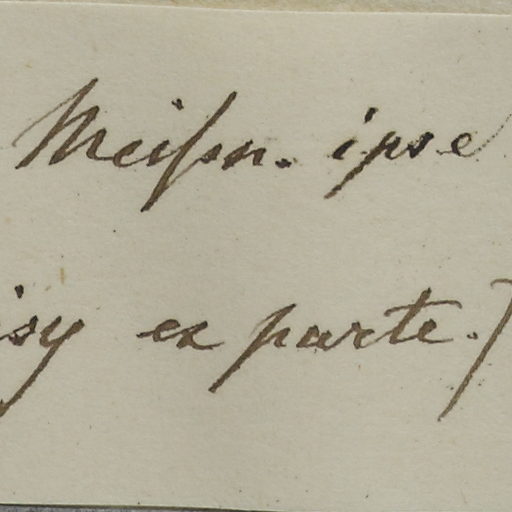 Meisſn. ipse
isy ex parte.)